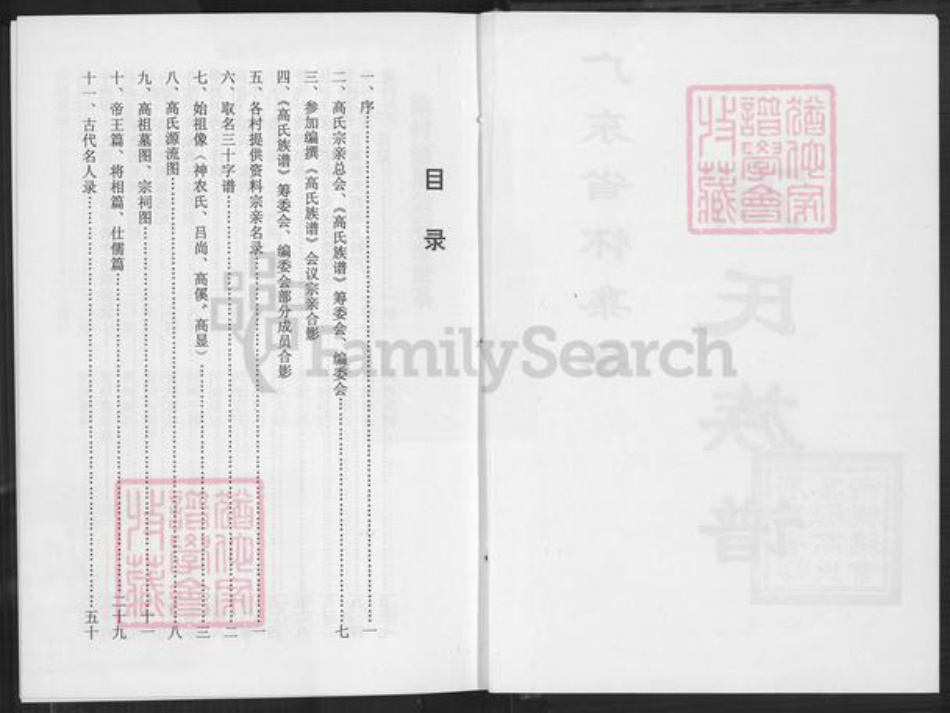 目录
一、序……一
二、高氏宗亲总会、《高氏族谱》筹委会、编委会……七
三、参加编撰《高氏族谱》会议宗亲合影
四、《高氏族谱》筹委会、编委会部分成员合影
五、各村提供资料宗亲名录……一
六、取名三十字谱……二
七、始祖像（神农氏、吕尚、高傒、高显）……三
八、高氏源流图……八
九、高祖墓图、宗祠图……十一
十、帝王篇、将相篇、仕儒篇……二十九
十一、古代名人录……五十
FamilySearch
广东省怀集
氏族谱